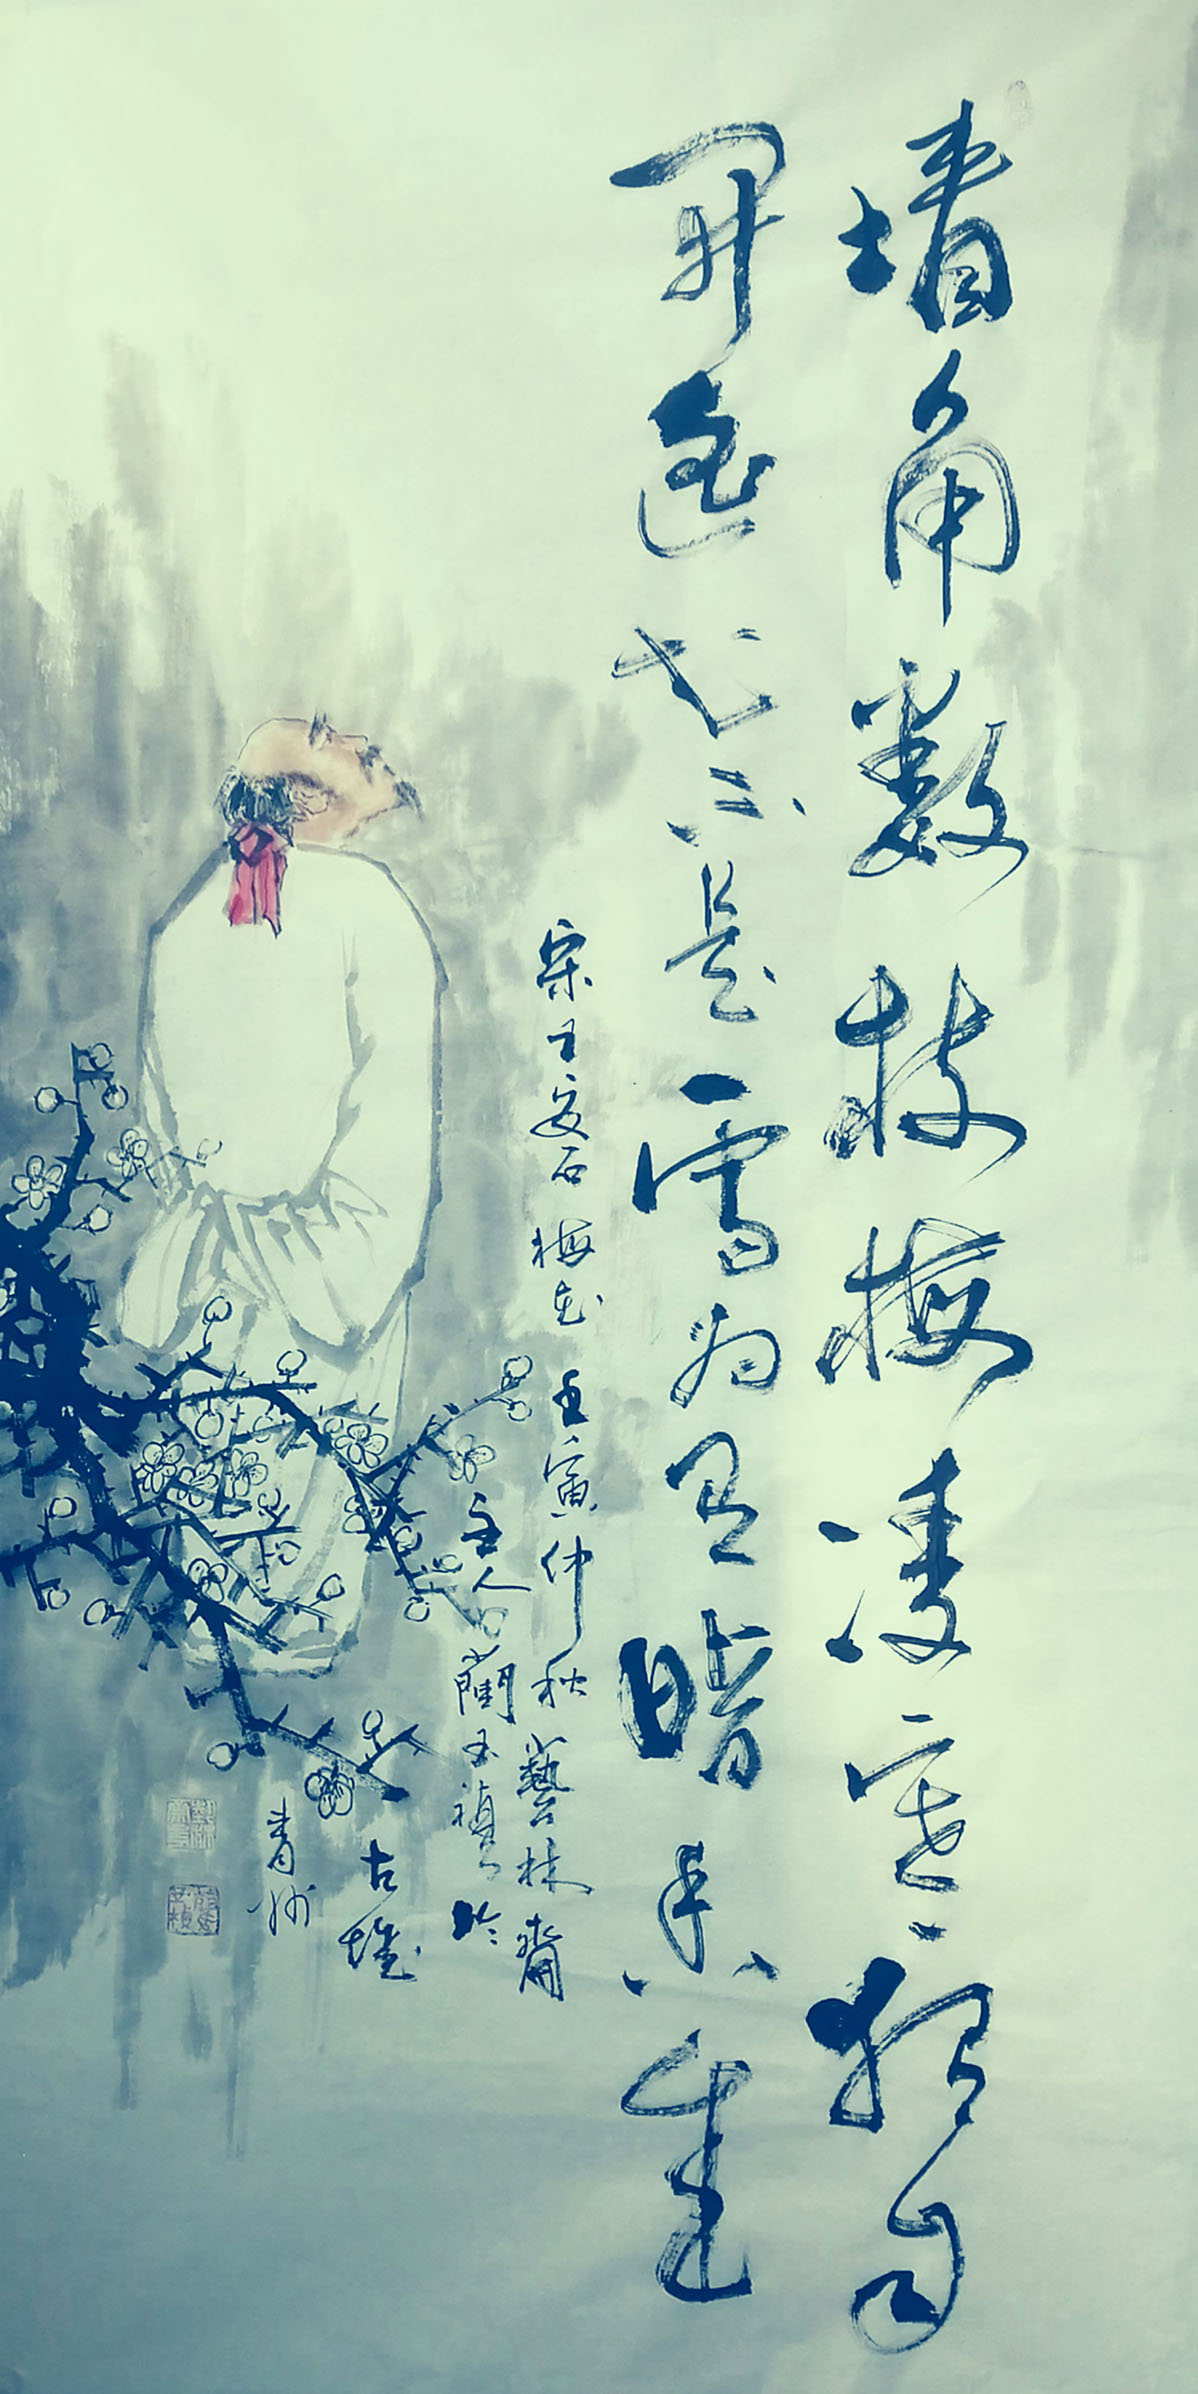 墙角数枝梅凌寒独自
開遥知不是雪为有暗香来
宋王安石梅花 壬寅仲秋藝林齋
主人蘭玉禎於
古城
青州